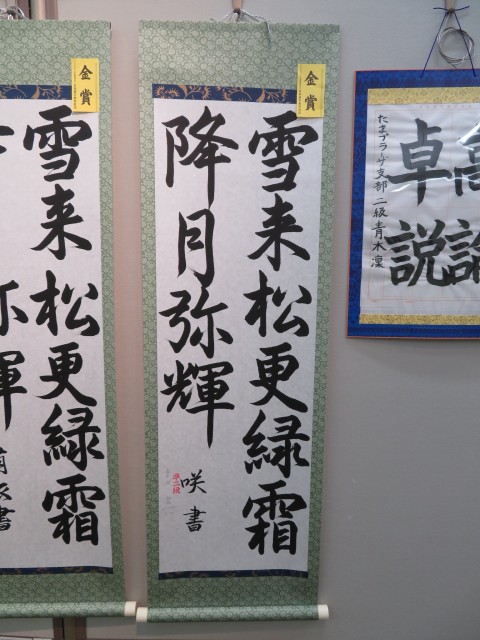 高論
卓説
たまプラーザ支部 二級 青木凜
金賞
雪来松更緑霜
降月弥輝
咲書
準二級
金賞
雪来松更緑霜
弥輝
書